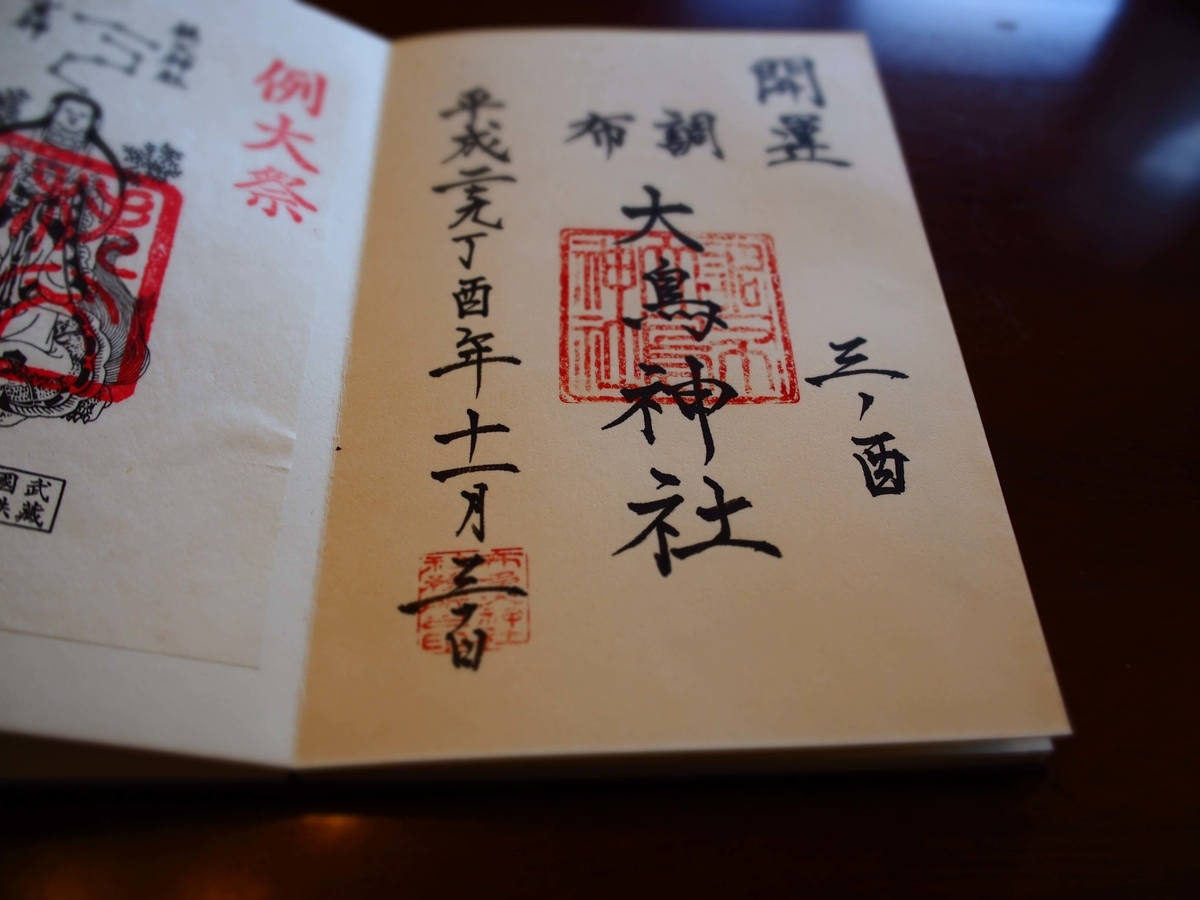 開運
三ノ酉
調布
大鳥神社
平成二十九丁酉年十一月三十日
例大祭
武藏
國